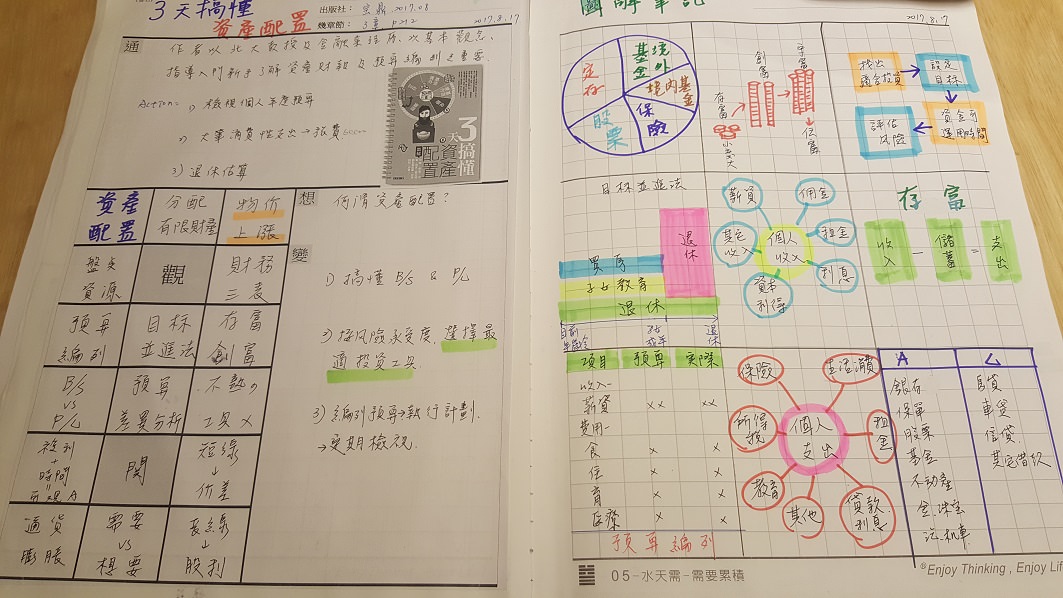 3天搞懂
資產配置
出版社: 2017.08
幾章節: 3章 p212
2017.8.17
通
作者以北大教授及金融業資歷,以基本觀念,
指導入門新手了解資產財報及預算編列之重要.
Action: 1) 檢視個人年度預算
2) 大筆消費性支出→
3) 退休估算
3天搞懂
資產配置
資產配置
分配有限財產
物價上漲
盤点資源
觀
財務三表
預算編列
目标並進法
存富創富
B/S vs P/L
預算差異分析
不熟の工具×
複利+時間=
関
短線↓價差
通貨膨脹
需要vs想要
長線↓股利
想
何謂資產配置?
變
1) 搞懂 B/S & P/L
2) 採風險承受度,選擇最
適投資工具
3) 編列預算→執行計劃
→定期檢視.
圖解筆記
2017.8.17
定存
境外基金
境內基金
保險
股票
存富
創富
守富
找出適合投資
設定目標
資金可運用時間
評估風險
目标並進法
買房
子女教育
退休
退休
目前年齡
退休
個人收入
薪資
佣金
租金
利息
資本利得
其它收入
存富
收入 - 儲蓄 = 支出
項目 預算 實際
收入-
薪資 ×× ××
費用-
食 × ×
住 × ×
育 × ×
医療 × ×
預算編列
個人支出
保險
生活消費
租金
貸款利息
其他
教育
所得稅
A L
銀存
保單
股票
基金
不動產
金.珠宝
汽.机車
房貸
車貸
信貸
其它借款
05-水天需-需要累積
©Enjoy Thinking , Enjoy Life